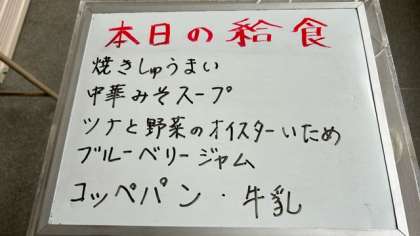 本日の給食
焼きしゅうまい
中華みそスープ
ツナと野菜のオイスターいため
ブルーベリージャム
コッペパン・牛乳